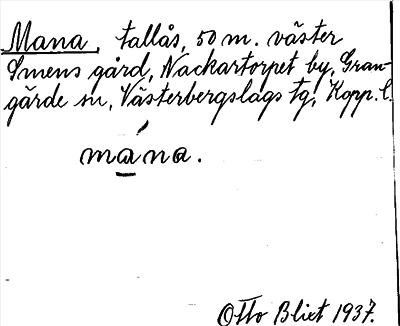 Mana, tallås, 50 m. väster
Smens gård, Nackartorpet by, Gran-
gärde sn, Västerbergslags tg, Kopp. l.
mána.
Otto Blixt 1937.